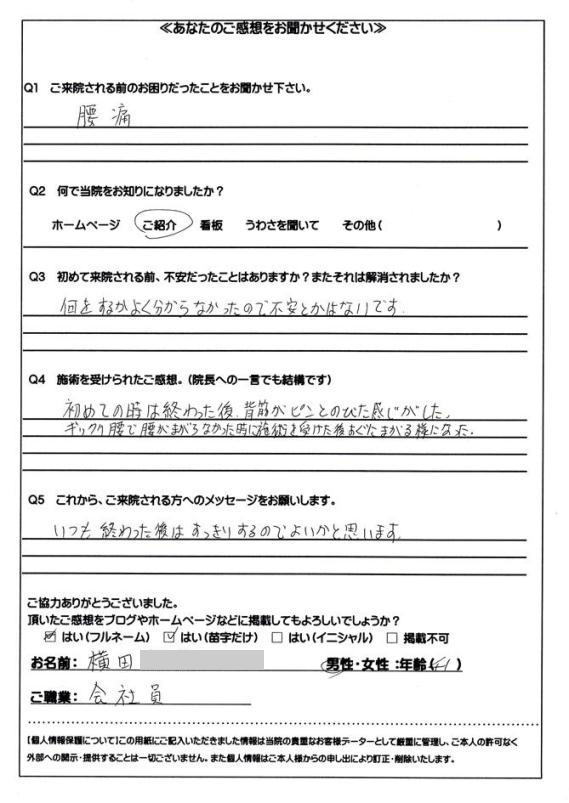 ≪あなたのご感想をお聞かせください≫
Q1 ご来院される前のお困りだったことをお聞かせ下さい。
腰痛
Q2 何で当院をお知りになりましたか？
ホームページ ご紹介 看板 うわさを聞いて その他( )
Q3 初めて来院される前、不安だったことはありますか？またそれは解消されましたか？
何をするかよく分からなかったので不安とかはないです.
Q4 施術を受けられたご感想。(院長への一言でも結構です)
初めての時は終わった後、背筋がピンとのびた感じがした。
ギックリ腰で腰がまがらなかった時に施術を受けた後すぐにまがる様になった.
Q5 これから、ご来院される方へのメッセージをお願いします。
いつも終わった後はすっきりするのでよいかと思います.
ご協力ありがとうございました。
頂いたご感想をブログやホームページなどに掲載してもよろしいでしょうか？
☑はい(フルネーム) ☑はい(苗字だけ) □はい(イニシャル) □掲載不可
お名前: 横田 男性・女性:年齢(41)
ご職業: 会社員
【個人情報保護について】この用紙にご記入いただきました情報は当院の貴重なお客様データーとして厳重に管理し、ご本人の許可なく
外部への開示・提供することは一切ございません。また個人情報はご本人様からの申し出により訂正・削除いたします。